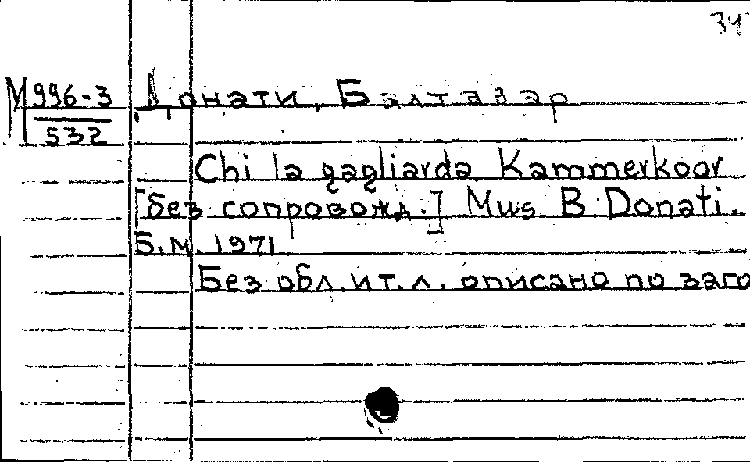 34
М 996-3
532
Донати, Балтазар
Chi la gagliarda Kammerkoor
[без сопровожд.] Mus B Donati.
Б.м. 1971
Без обл. и т. л. описано по заго